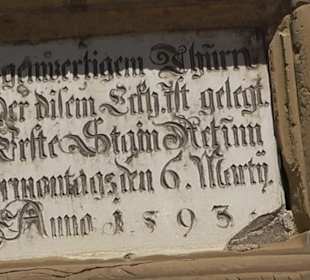 gegenwertigem Thurn
Der disem Eckh ist gelegt
Erste Stain Retzum
vormontags den 6. Marty.
Anno. 1593.